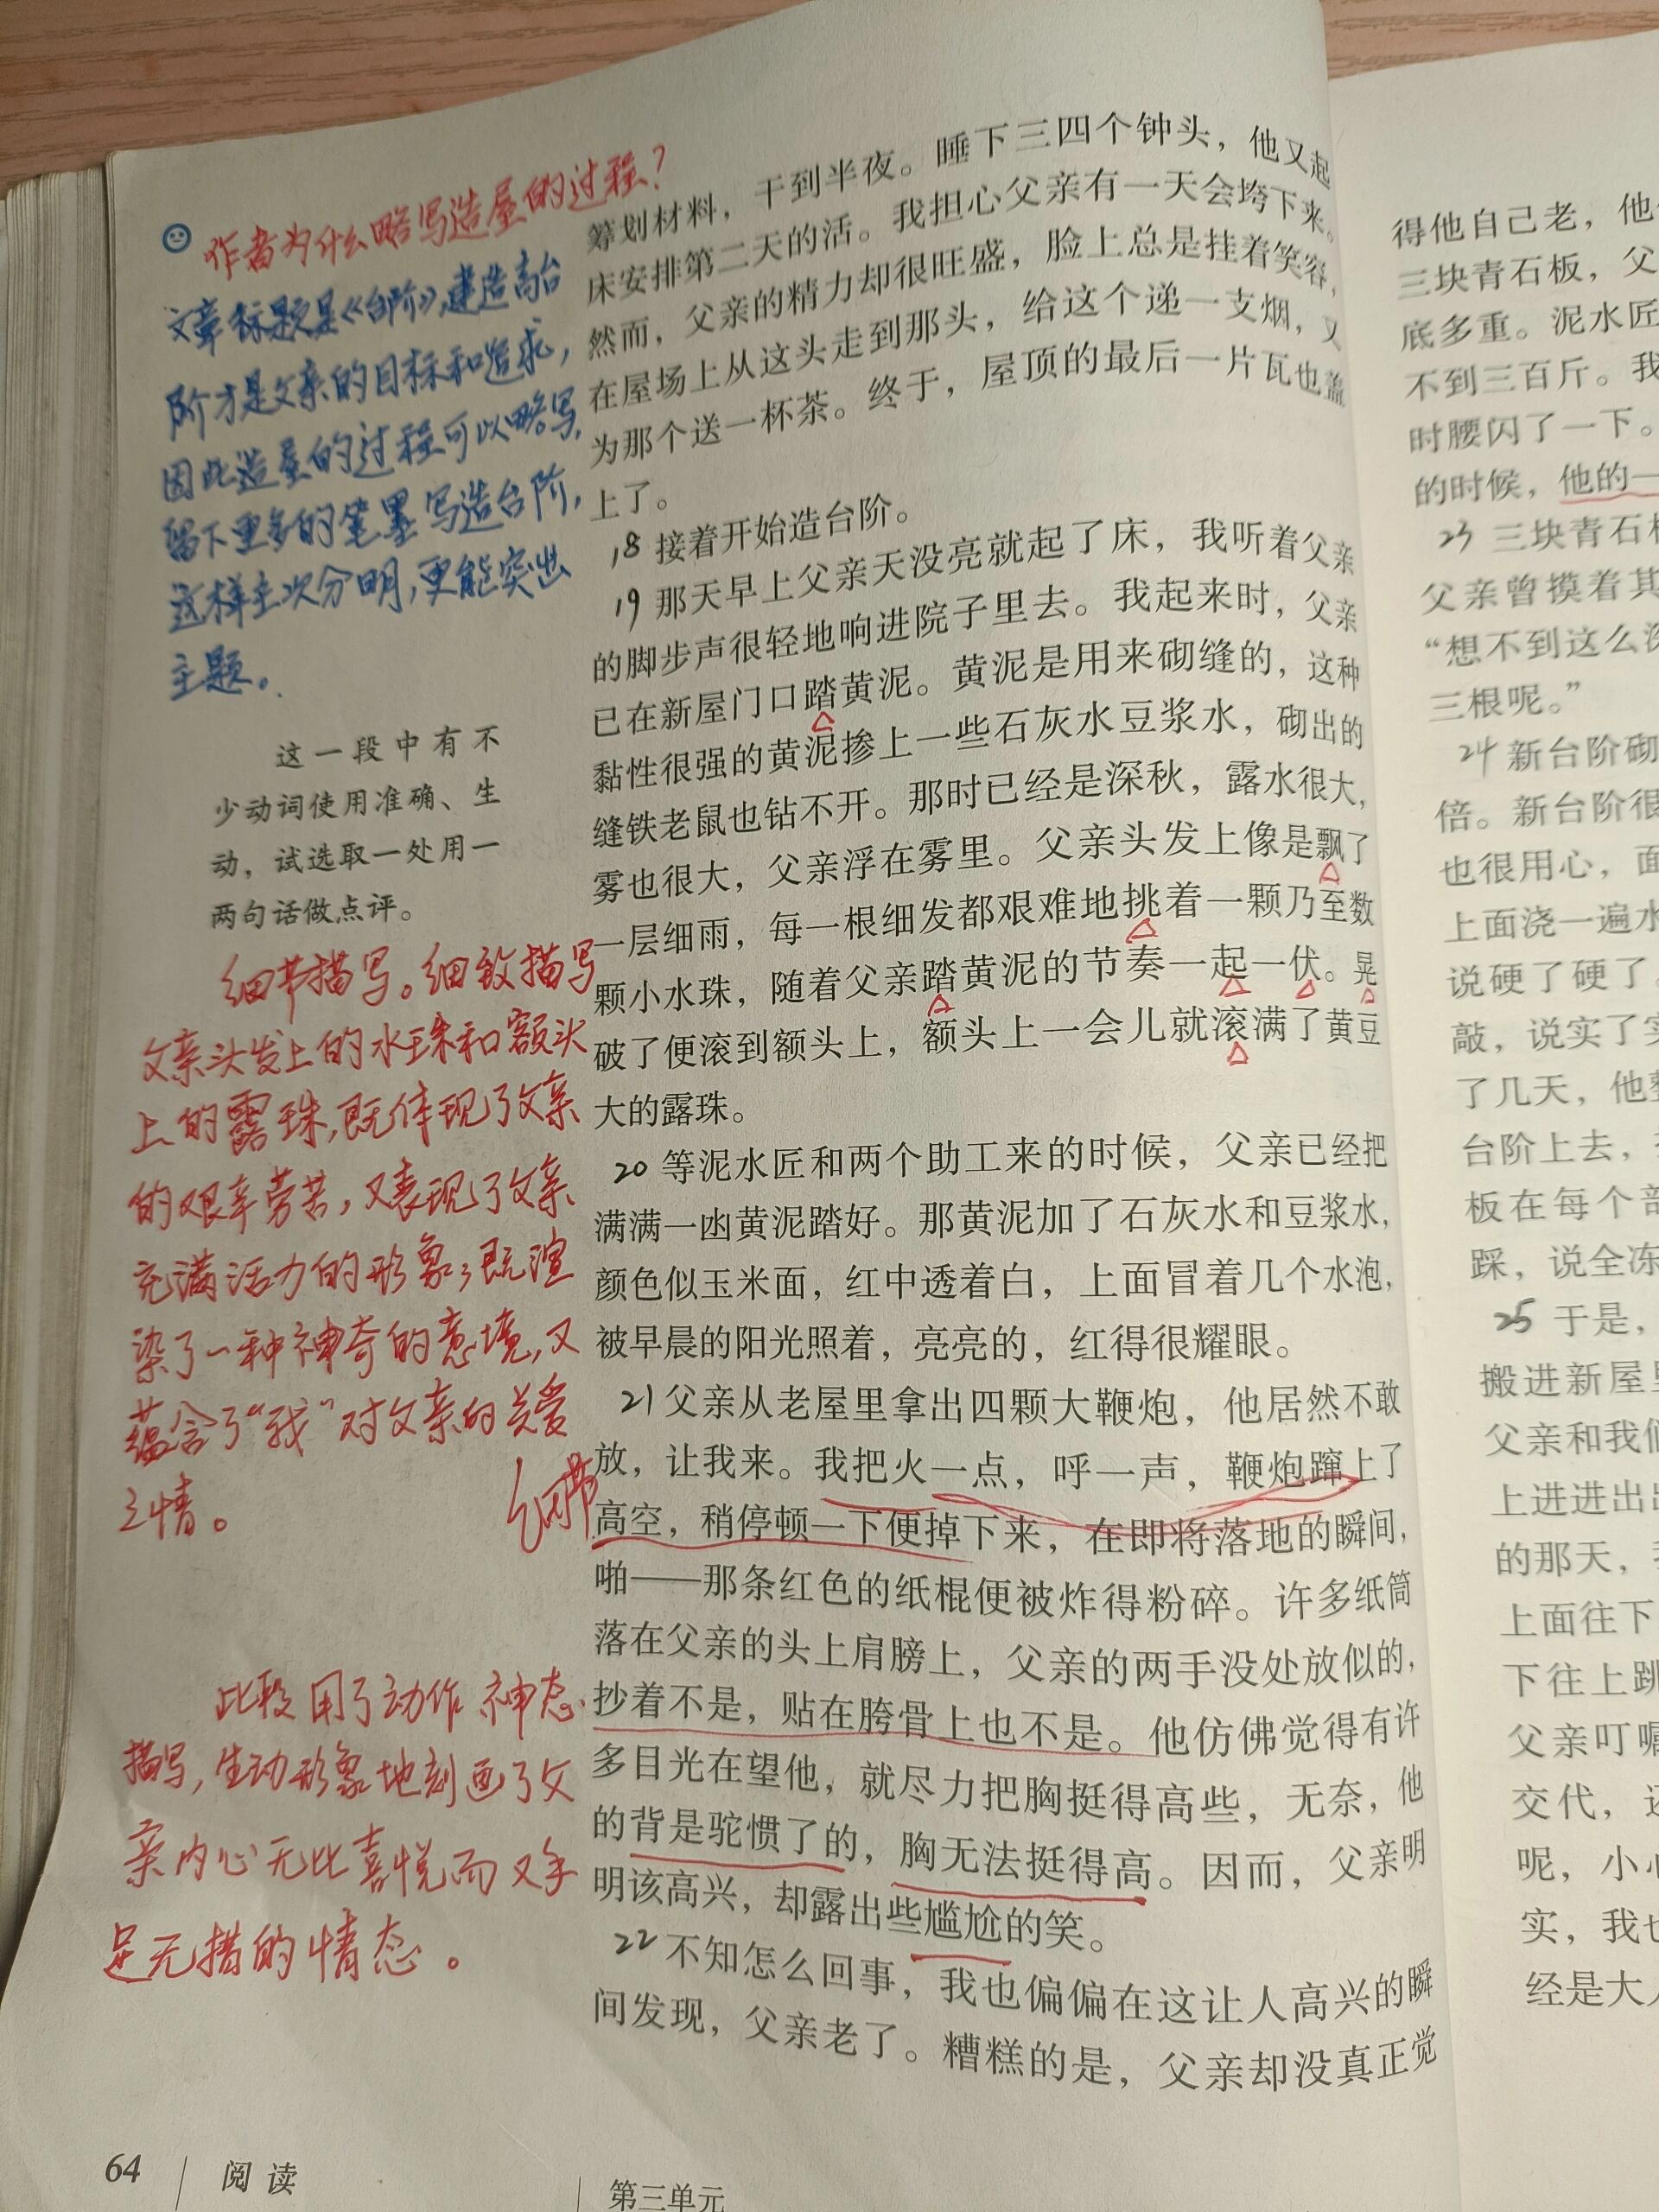 作者为什么略写造屋的过程？
文章标题是《台阶》，建造高台
阶才是父亲的目标和追求，
因此造屋的过程可以略写，
留下更多的笔墨写造台阶，
这样主次分明，更能突出
主题。
这一段中有不
少动词使用准确、生
动，试选取一处用一
两句话做点评。
细节描写。细致描写
父亲头发上的水珠和额头
上的露珠，既体现了父亲
的艰辛劳苦，又表现了父亲
充满活力的形象；既渲
染了一种神奇的意境，又
蕴含了“我”对父亲的关爱
之情。
细节
此段用了动作 神态
描写，生动形象地刻画了父
亲内心无比喜悦而又手
足无措的情态。
筹划材料，干到半夜。睡下三四个钟头，他又起
床安排第二天的活。我担心父亲有一天会垮下来。
然而，父亲的精力却很旺盛，脸上总是挂着笑容，
在屋场上从这头走到那头，给这个递一支烟，又
为那个送一杯茶。终于，屋顶的最后一片瓦也盖
上了。
18 接着开始造台阶。
19 那天早上父亲天没亮就起了床，我听着父亲
的脚步声很轻地响进院子里去。我起来时，父亲
已在新屋门口踏黄泥。黄泥是用来砌缝的，这种
黏性很强的黄泥掺上一些石灰水豆浆水，砌出的
缝铁老鼠也钻不开。那时已经是深秋，露水很大，
雾也很大，父亲浮在雾里。父亲头发上像是飘了
一层细雨，每一根细发都艰难地挑着一颗乃至数
颗小水珠，随着父亲踏黄泥的节奏一起一伏。晃
破了便滚到额头上，额头上一会儿就滚满了黄豆
大的露珠。
20 等泥水匠和两个助工来的时候，父亲已经把
满满一凼黄泥踏好。那黄泥加了石灰水和豆浆水，
颜色似玉米面，红中透着白，上面冒着几个水泡，
被早晨的阳光照着，亮亮的，红得很耀眼。
21 父亲从老屋里拿出四颗大鞭炮，他居然不敢
放，让我来。我把火一点，呼一声，鞭炮蹿上了
高空，稍停顿一下便掉下来，在即将落地的瞬间，
啪——那条红色的纸棍便被炸得粉碎。许多纸筒
落在父亲的头上肩膀上，父亲的两手没处放似的，
抄着不是，贴在胯骨上也不是。他仿佛觉得有许
多目光在望他，就尽力把胸挺得高些，无奈，他
的背是驼惯了的，胸无法挺得高。因而，父亲明
明该高兴，却露出些尴尬的笑。
22 不知怎么回事，我也偏偏在这让人高兴的瞬
间发现，父亲老了。糟糕的是，父亲却没真正觉
64
阅读
第三单元
得他自己老，他
三块青石板，父
底多重。泥水匠
不到三百斤。我
时腰闪了一下。
的时候，他的一
23 三块青石
父亲曾摸着其
“想不到这么深
三根呢。”
24 新台阶砌
倍。新台阶很
也很用心，面
上面浇一遍水
说硬了硬了。
敲，说实了实
了几天，他整
台阶上去，
板在每个部
踩，说全冻
25 于是，
搬进新屋里
父亲和我们
上进进出出
的那天，
上面往下
下往上跳
父亲叮嘱
交代，还
呢，小心
实，我也
经是大人